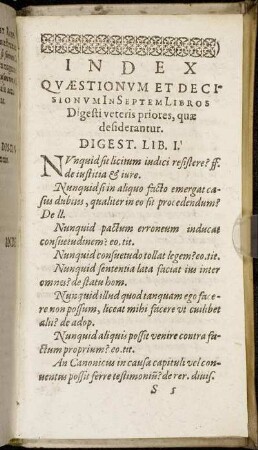 INDEX
QVÆSTIONVM ET DECI-
SIONVM IN SEPTEM LIBROS
Digesti veteris priores, quæ
desiderantur.
DIGEST. LIB. I.
NVnquid sit licitum iudici resistere? ff.
de iustitia & iure.
Nunquid si in aliquo facto emergat ca-
sus dubius, qualiter in eo sit procedendum?
De ll.
Nunquid pactum erroneum inducat
consuetudinem? eo. tit.
Nunquid consuetudo tollat legem? eo. tit.
Nunquid sententia lata faciat ius inter
omnes? de statu hom.
Nunquid illud quod tanquam ego face
re non possum, liceat mihi facere vt cuilibet
alij? de adop.
Nunquid aliquis possit venire contra fa-
ctum proprium? eo. tit.
An Canonicus in causa capituli vel con-
uentus possit ferre testimoniũ? de rer. diuis.
S 1